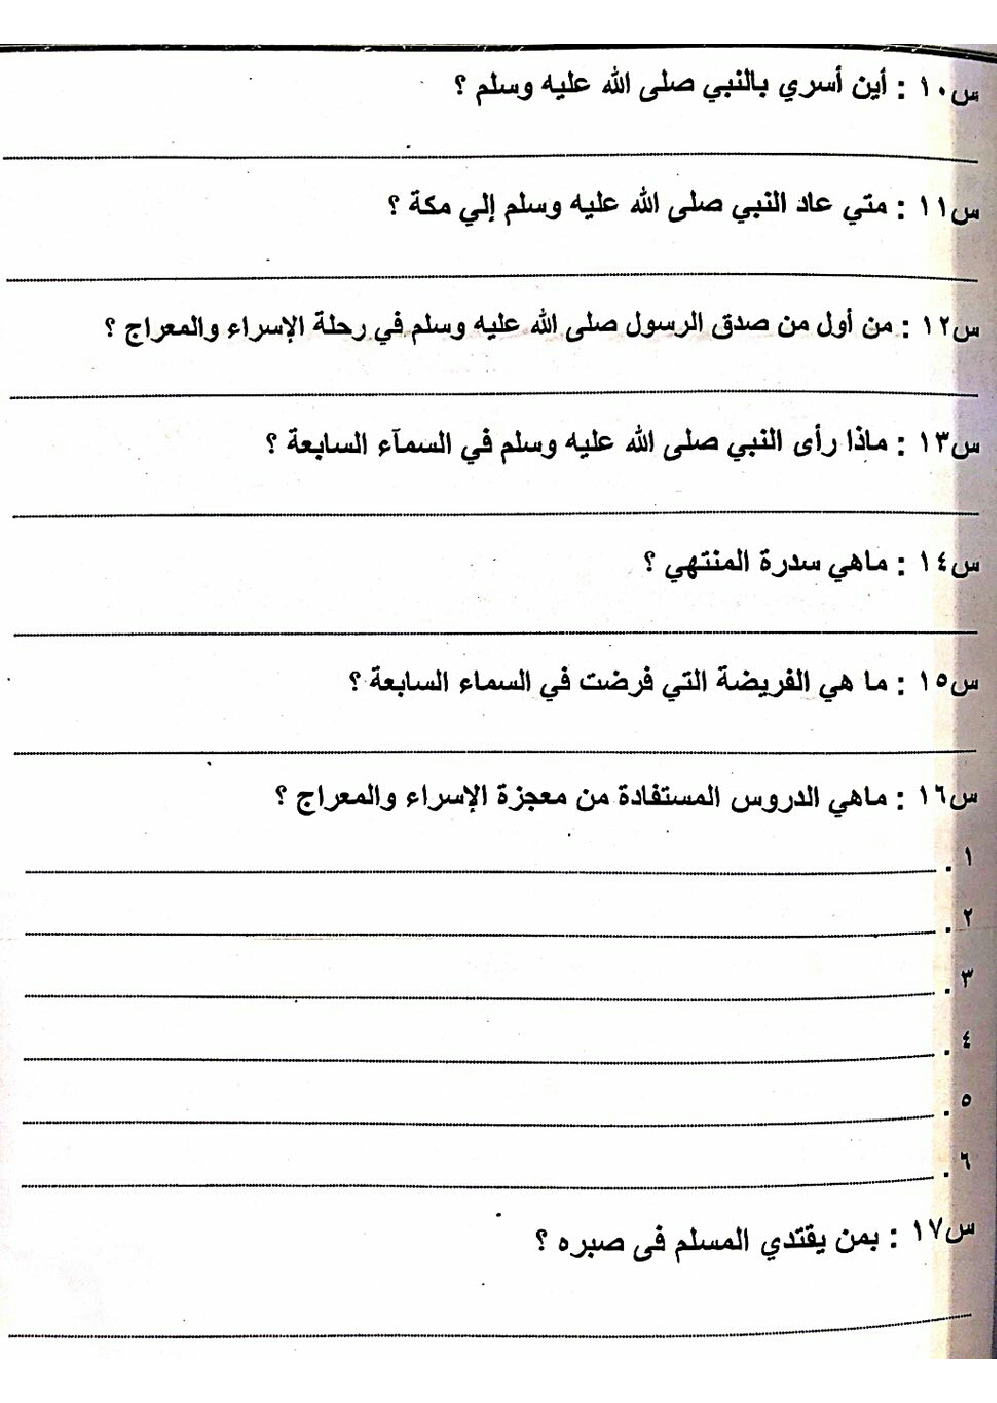 س١٠ : أين أسري بالنبي صلى الله عليه وسلم ؟
س١١ : متي عاد النبي صلى الله عليه وسلم إلي مكة ؟
س١٢ : من أول من صدق الرسول صلى الله عليه وسلم في رحلة الإسراء والمعراج ؟
س١٣ : ماذا رأى النبي صلى الله عليه وسلم في السمآء السابعة ؟
س١٤ : ماهي سدرة المنتهي ؟
س١٥ : ما هي الفريضة التي فرضت في السماء السابعة ؟
س١٦ : ماهي الدروس المستفادة من معجزة الإسراء والمعراج ؟
١ .
٢ .
٣ .
٤ .
٥ .
٦ .
س١٧ : بمن يقتدي المسلم فى صبره ؟